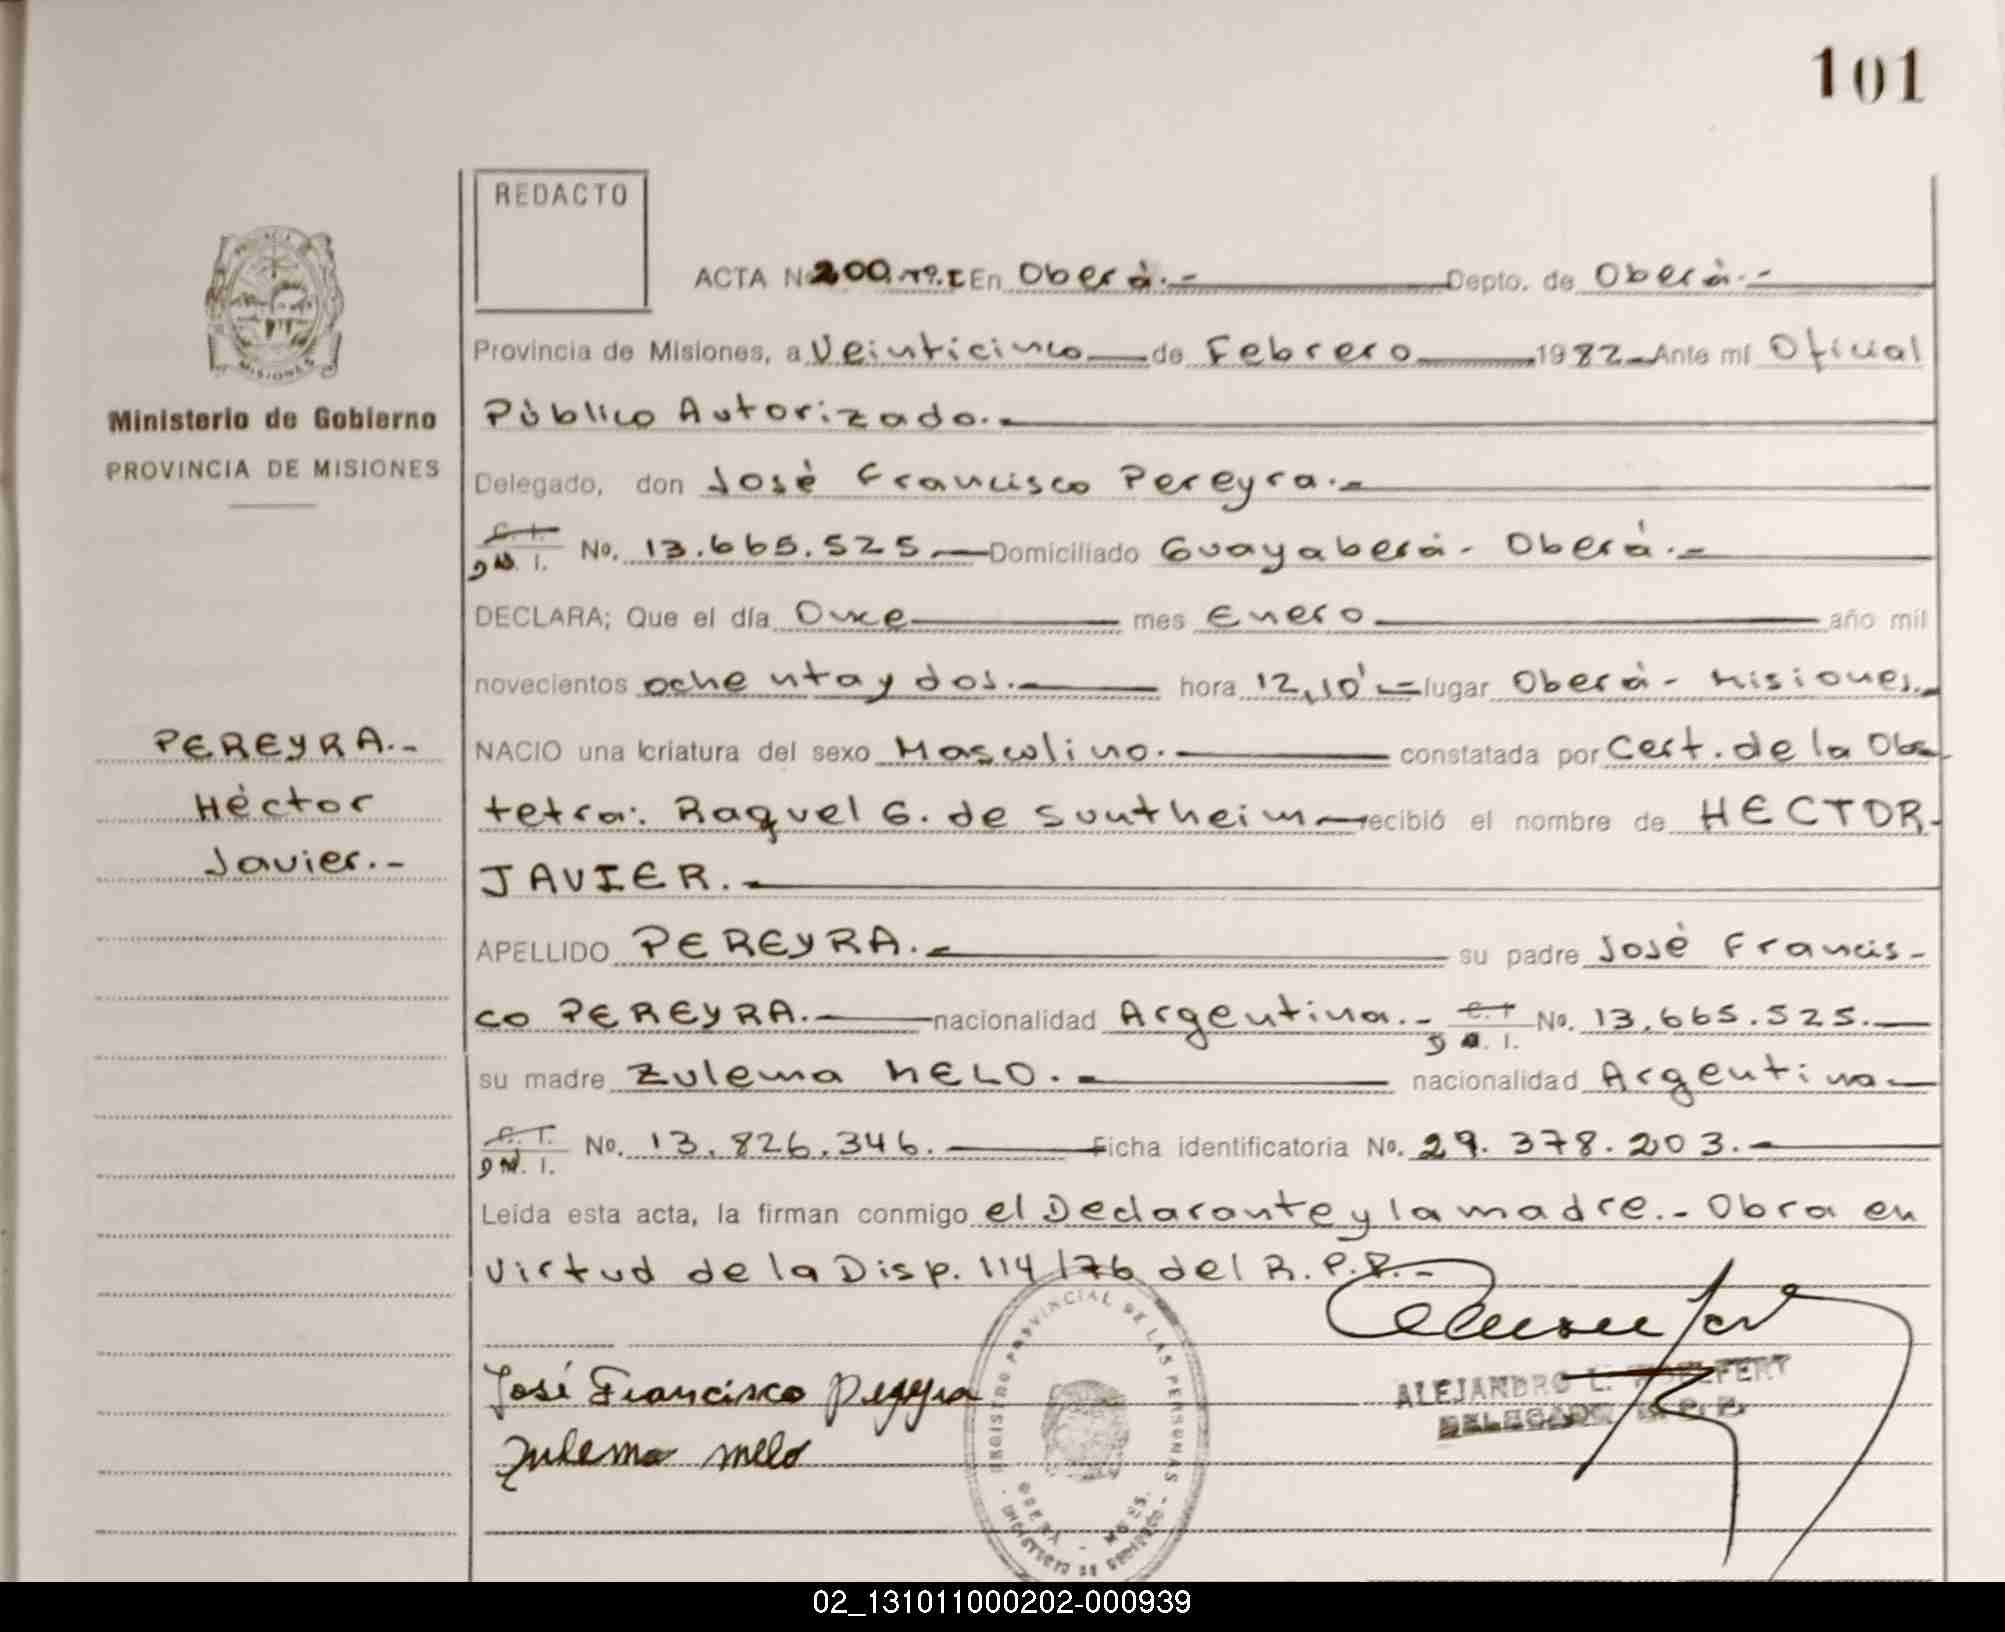 101
REDACTO
ACTA N 200. Tº. I En Oberá.- Depto. de Oberá.-
Provincia de Misiones, a Veinticinco de Febrero 1982 Ante mí Oficial
Público Autorizado.-
Delegado, don José Francisco Pereyra.-
C. I.
D N. I. No. 13.665.525.- Domiciliado Guayaberá - Oberá.-
DECLARA; Que el día Once mes Enero año mil
novecientos ochenta y dos.- hora 12,10' lugar Oberá - Misiones.-
NACIO una criatura del sexo Masculino.- constatada por Cert. de la Obs
tetra: Raquel G. de Suntheim recibió el nombre de HECTOR-
JAVIER.-
APELLIDO PEREYRA.- su padre José Francis-
co PEREYRA.- nacionalidad Argentina.- C. I
D N. I. No. 13.665.525.-
su madre Zulema MELO.- nacionalidad Argentina-
C. I.
D N. I. No. 13.826.346.- Ficha identificatoria No. 29.378.203.-
Leída esta acta, la firman conmigo el Declarante y la madre.- Obra en
virtud de la Disp. 114/76 del R.P.P.-
José Francisco Pereyra
Zulema melo
ALEJANDRO L.
DELEGADO R. P. P.
REGISTRO PROVINCIAL DE LAS PERSONAS
OBERA - MNES.
MINISTERIO DE GOBIERNO
MISIONES
Ministerio de Gobierno
PROVINCIA DE MISIONES
PEREYRA.-
Héctor
Javier.-
02_131011000202-000939